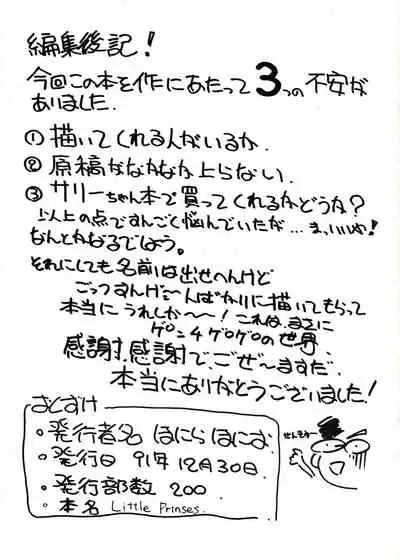 編集後記！
今回この本を作にあたって3つの不安が
ありました.
① 描いてくれる人がいるか.
② 原稿がなかなか上らない.
③ サリーちゃん本で買ってくれるかどうか？
以上の点ですんごく悩んでいたが…まっいいか！
なんとかなるでしょう。
それにしても名前は出せへんけど
ごっつすんげェ〜んばかりに描いてもらって
本当にうれしか〜〜！これは、まさに
ゲロニ4ゲロゲロの世界.
感謝、感謝で、ごぜ〜ますだ.
本当にありがとうございました！
おとずけ
・発行者名 はにらはにお
・発行日 91年12月30日.
・発行部数 200
・本名 Little Prinses.